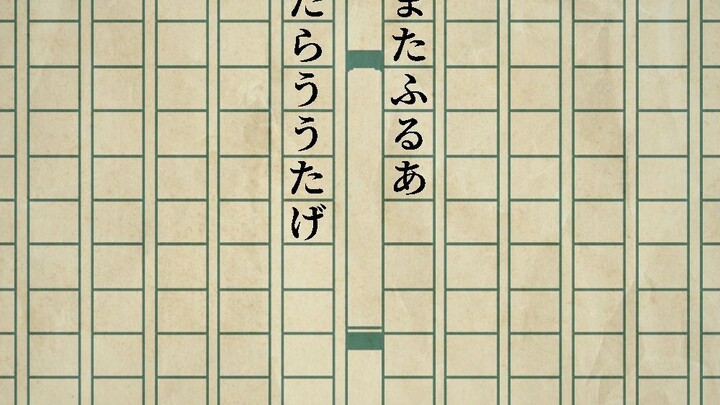 またふるあ
たらううたげ